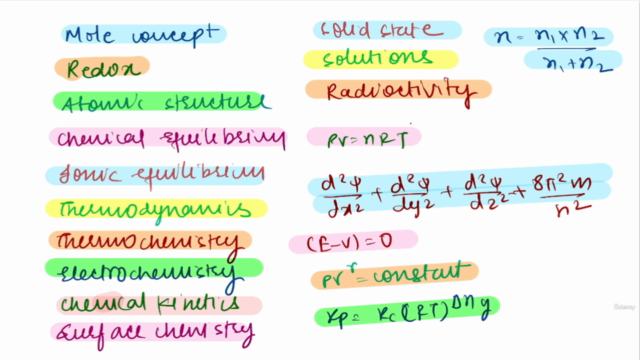 Mole concept
Redox
Atomic structure
Chemical equilibrium
Ionic equilibrium
Thermodynamics
Thermochemistry
Electrochemistry
Chemical kinetics
Surface chemistry
Solid state
Solutions
Radioactivity
PV = nRT
d²φ/dx² + d²φ/dy² + d²φ/dz² + 8π²m/n²
(E-V) = 0
PV^r = constant
Kp = Kc (RT)^Δng
n = n₁ × n₂ / n₁ + n₂
Udemy